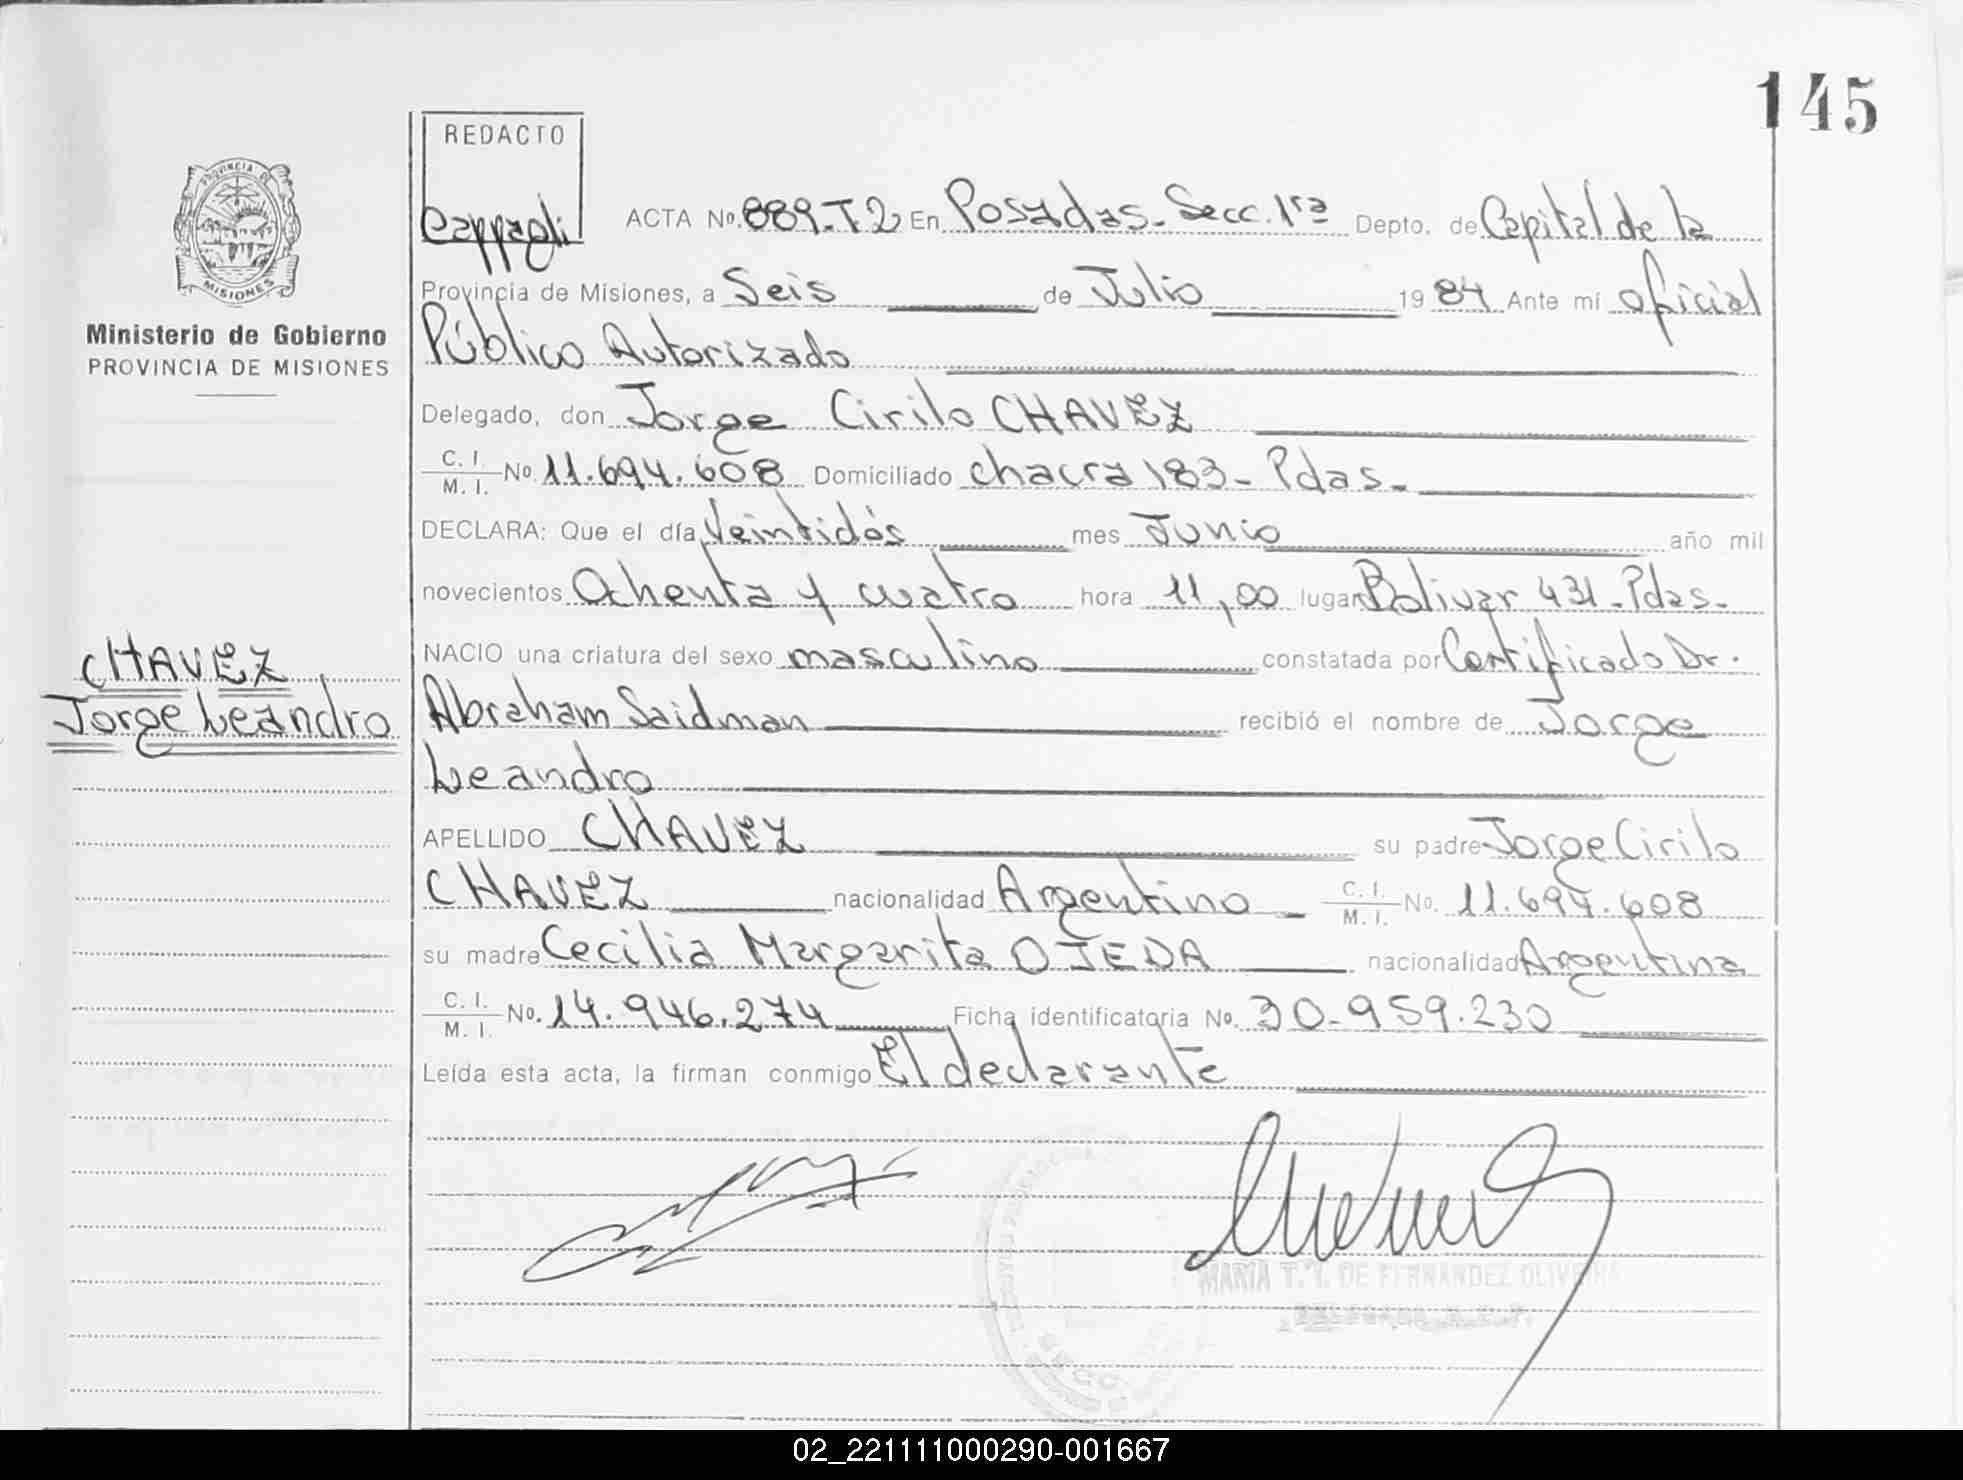 145
REDACTO
Cappagli
ACTA No. 889-T2 En Posadas-Secc. 1ra Depto. de Capital de la
Provincia de Misiones, a Seis de Julio 19 84 Ante mí oficial
Público Autorizado
Delegado, don Jorge Cirilo CHAVEZ
C. I.
M. I. No. 11.694.608 Domiciliado chacra 183- Pdas-
DECLARA: Que el día Veintidós mes Junio año mil
novecientos Ochenta y cuatro hora 11,00 lugar Bolivar 431-Pdas-
NACIO una criatura del sexo masculino constatada por Certificado Dr.
Abraham Saidman recibió el nombre de Jorge
Leandro
APELLIDO CHAVEZ su padre Jorge Cirilo
CHAVEZ nacionalidad Argentino - C. I.
M. I. No. 11.694.608
su madre Cecilia Margarita OJEDA nacionalidad Argentina
C. I.
M. I. No. 14.946.274 Ficha identificatoria No. 30-959.230
Leída esta acta, la firman conmigo El declarante
MARIA T. DE FERNANDEZ OLIVEIRA
PROVINCIA DE
MISIONES
Ministerio de Gobierno
PROVINCIA DE MISIONES
CHAVEZ
Jorge Leandro
02_221111000290-001667